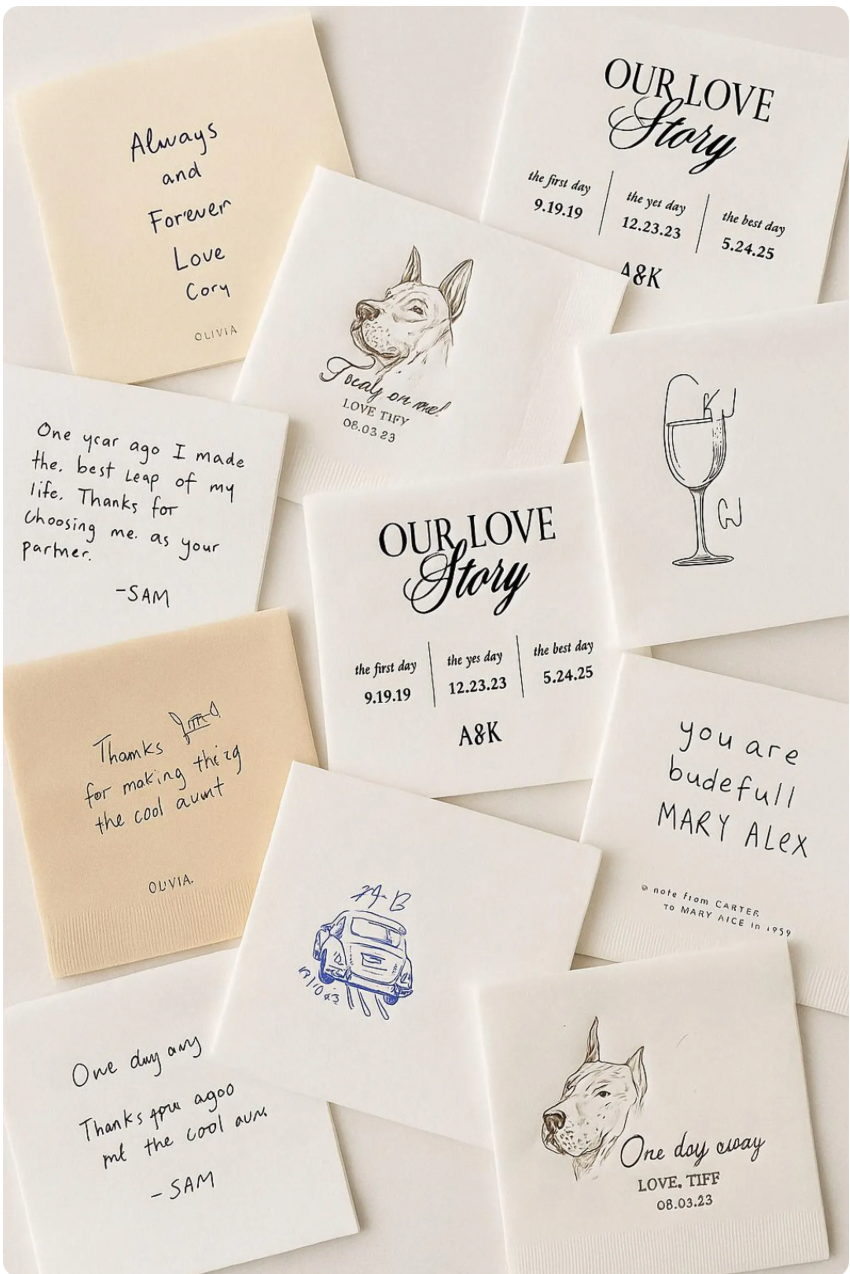 Always
and
Forever
Love
Cory
OLIVIA
OUR LOVE
Story
the first day
9.19.19
the yet day
12.23.23
the best day
5.24.25
A&K
on me!
LOVE TIFY
08.03.23
One year ago I made
the. best Leap of my
life. Thanks for
choosing me. as your
partner.
-SAM
OUR LOVE
Story
the first day
9.19.19
the yes day
12.23.23
the best day
5.24.25
A&K
Thanks
for making
the cool aunt
OLIVIA.
you are
budefull
MARY ALEX
a note from CARTER
TO MARY AICE in 1959
One day any
Thanks agoo
the cool
- SAM
One day away
LOVE. TIFF
08.03.23